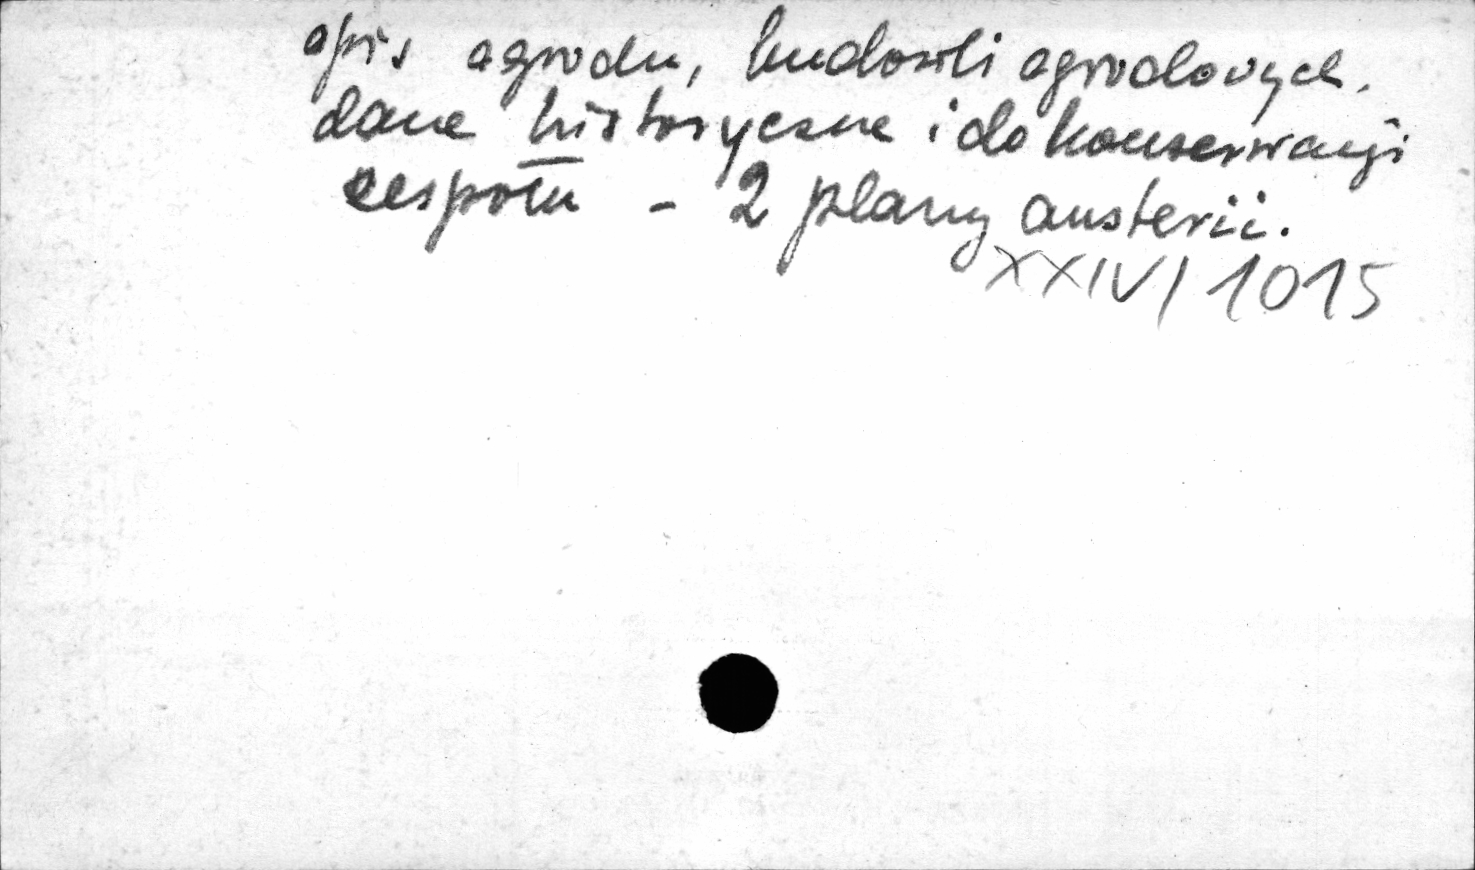 opis ogrodu, budowli ogrodowych,
dane historyczne i do konserwacji
zespołu - 2 plany austerii.
XXIV/1015